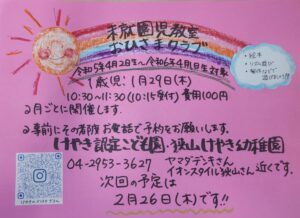 未就園児教室
おひさまクラブ
令和5年4月2日生~令和6年4月1日生対象
・絵本
・リズム遊び
・製作などで
遊びましょう!
1歳児:1月29日(木)
10:30~11:30(10:15受付)費用100円
2月ごとに開催します。
事前にお電話で予約をお願いします。
けやき認定こども園・狭山けやき幼稚園
04-2953-3627
ヤマダデンキさん
イオンスタイル狭山さん 近くです。
次回の予定は
2月26日(木)です!!